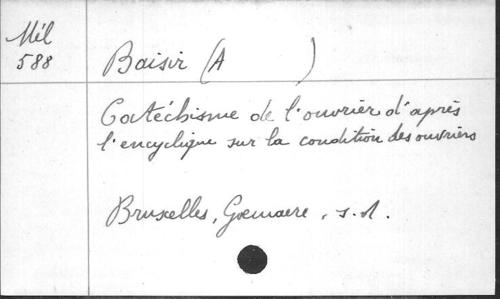 Mél
588
Baisir (A )
Catéchisme de l'ouvrier d'après
l'encyclique sur la condition des ouvriers
Bruxelles, Goemaere, s.d.